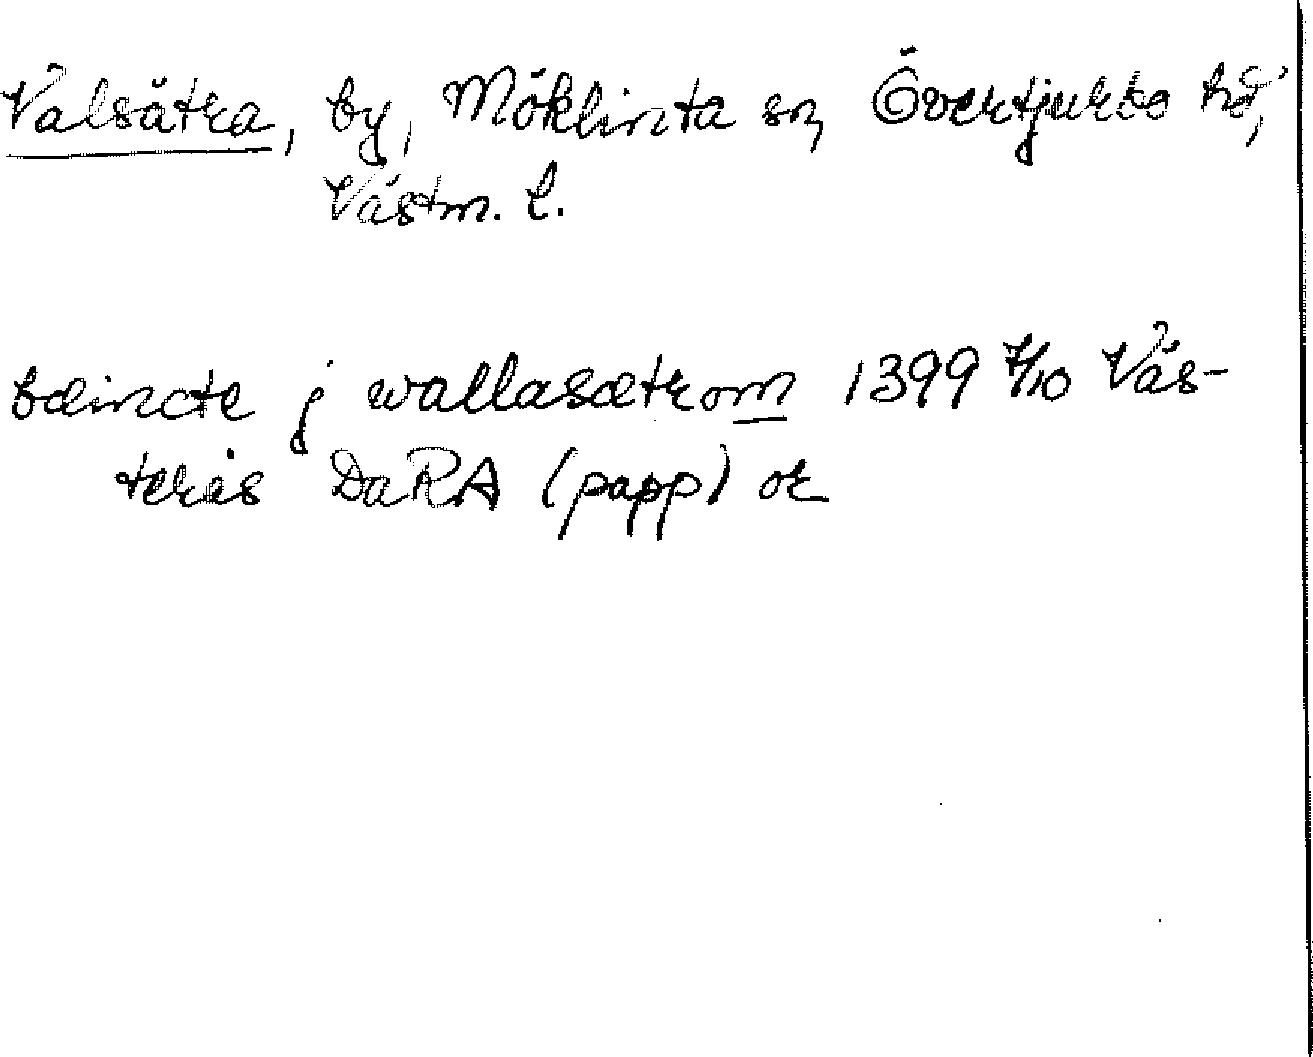 Valsätra, by, Möklinta sn, Övertjurbo hd,
Västm. l.
j wallasætrom 1399 7/10 Väs-
terås DaRA (papp) or